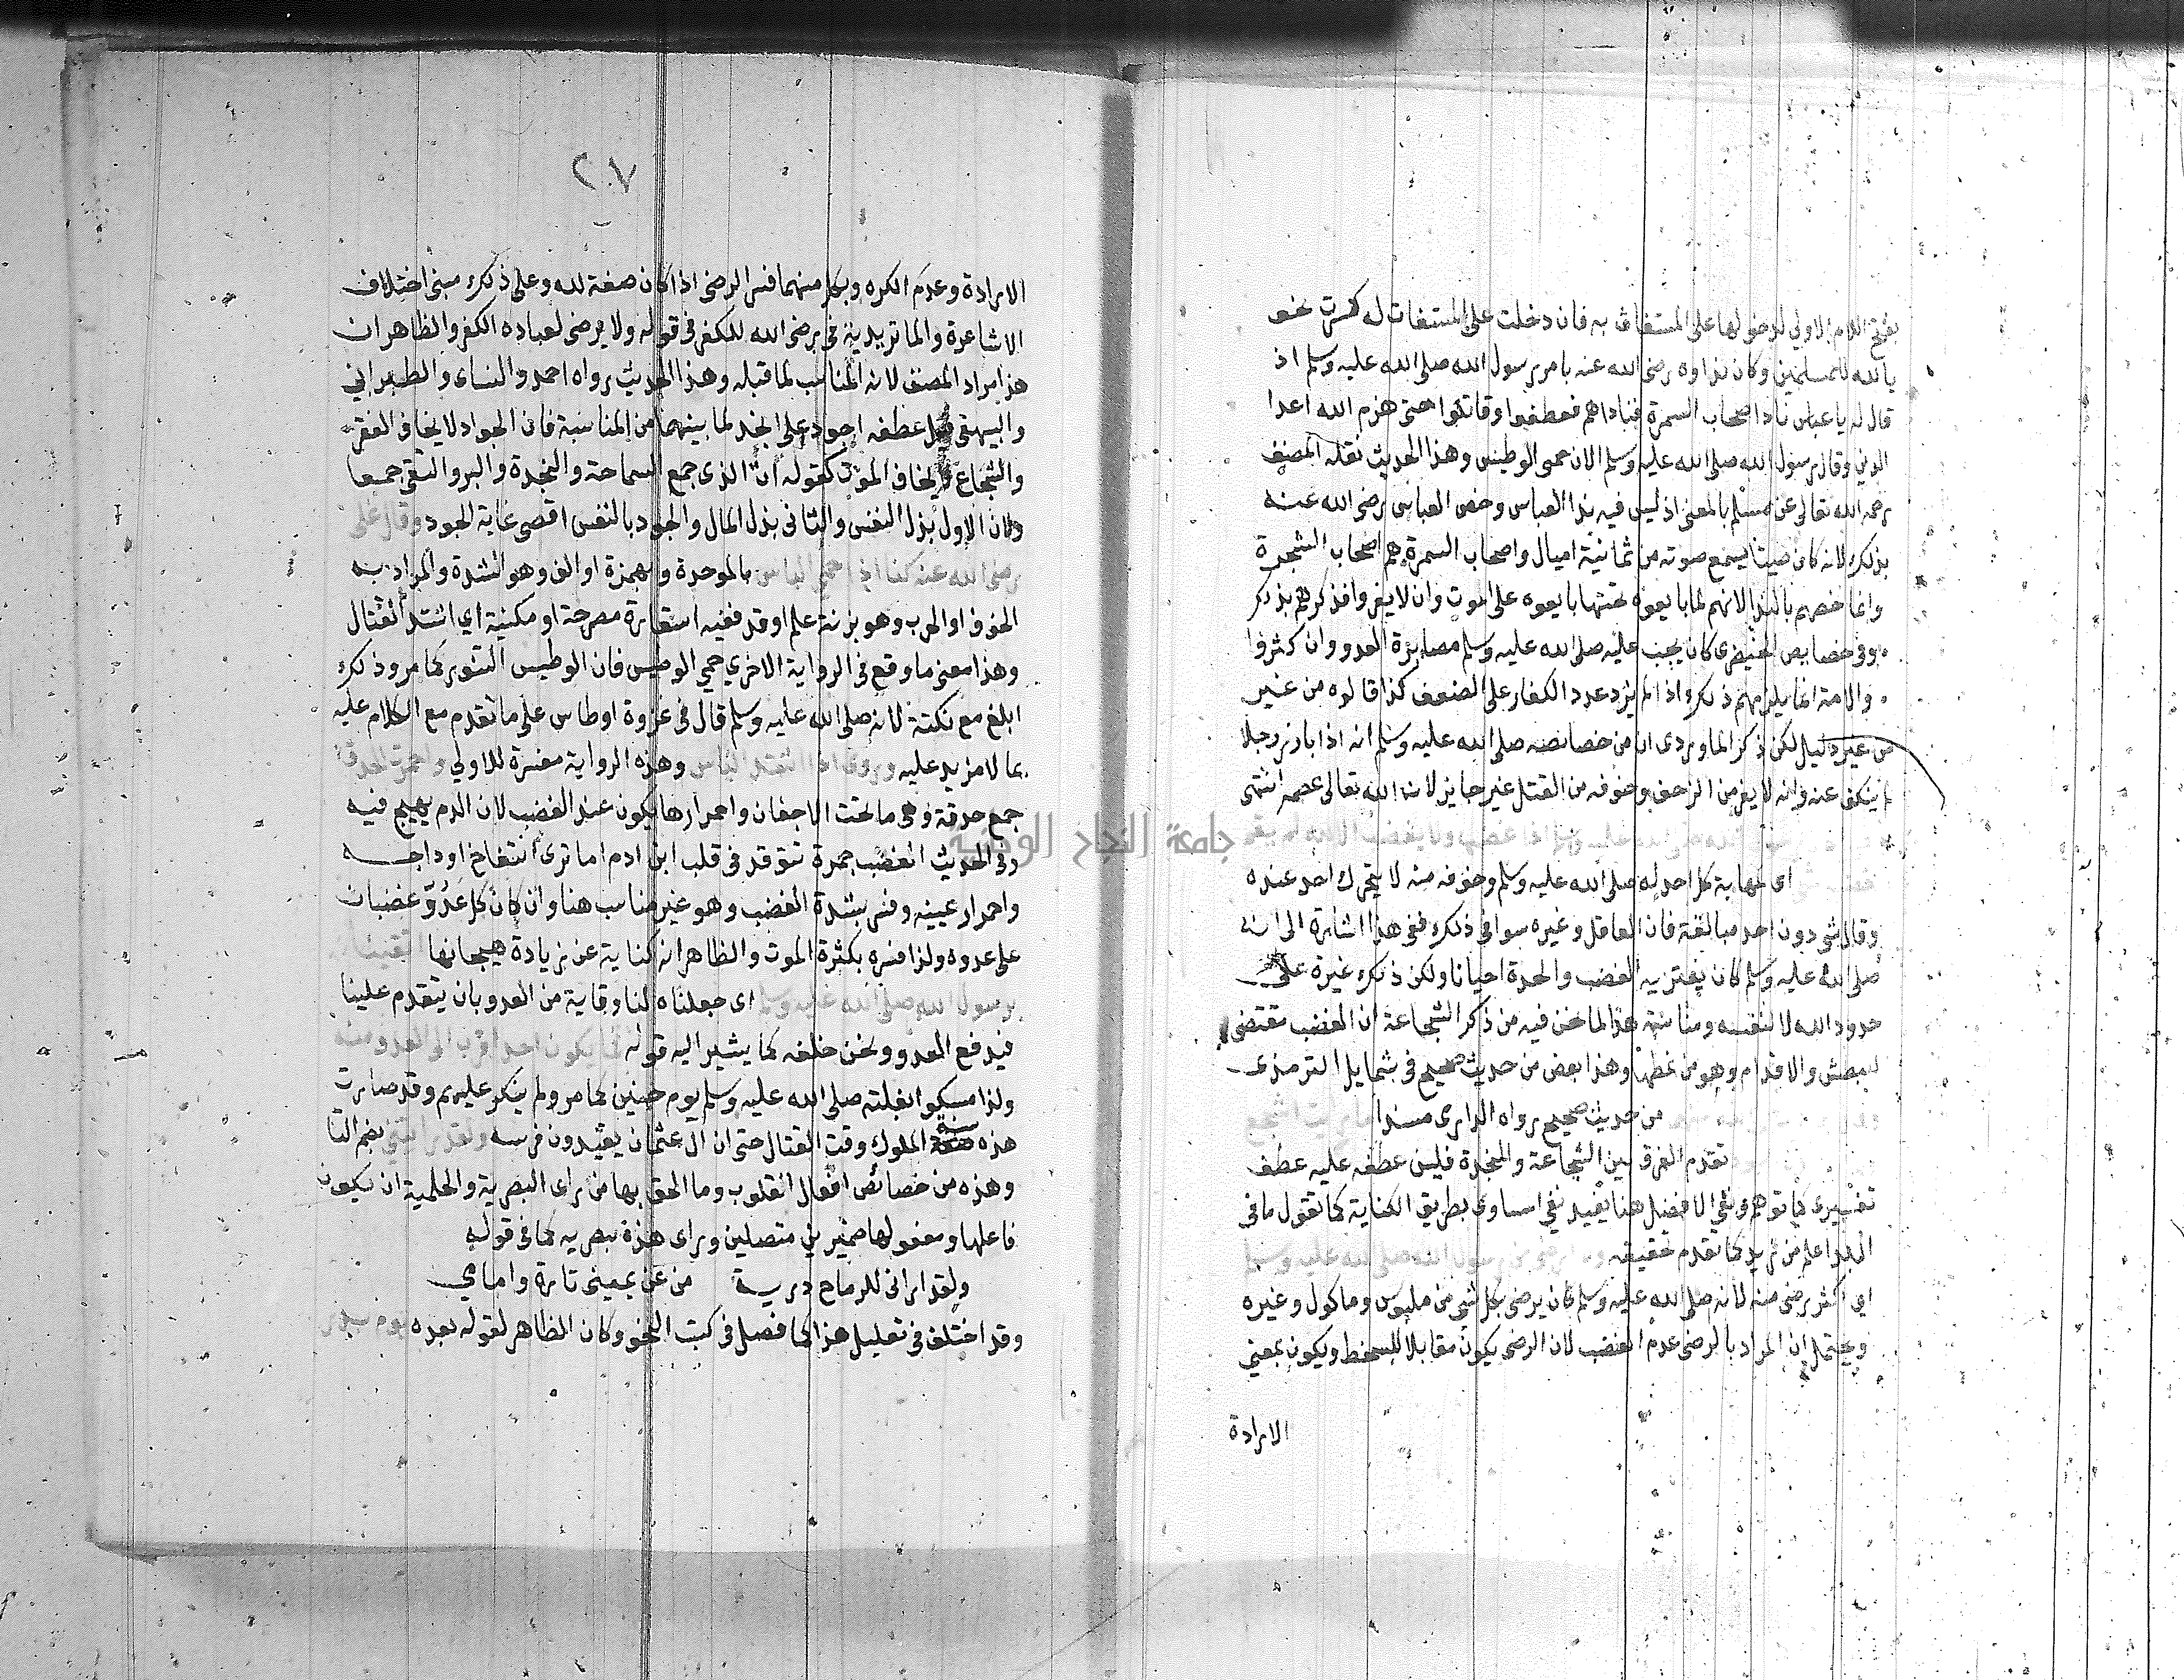 بفتح اللام الاولي لدخولها على المستغاث به فان دخلت على المستغاث له كسرت نحو
يا لله للمسلمين وكان نداوه رضى الله عنه بامر رسول الله صلى الله عليه وسلم اذ
قال له يا عباس ناد اصحاب السمرة فناداهم فعطفوا وقاتلوا حتى هزم الله اعدا
الدين وقال رسول الله صلى الله عليه وسلم الان حمى الوطيس وهذا الحديث نقله المصنف
رحمه الله تعالى عن مسلم بالمعنى اذ ليس فيه ندا العباس وخص العباس رضى الله عنه
بذلك لانه كان صيتا يسمع صوته من ثمانية اميال واصحاب السمرة هم اصحاب الشجرة
وانما خصهم بالندا لانهم لما بايعوه تحتها بايعوه على الموت وان لا يفروا فذكرهم بذلك
وفى خصايص الخيضرى كان يجب عليه صلى الله عليه وسلم مصابرة العدو وان كثروا
والامة انما يلزمهم ذلك اذا لم يزد عدد الكفار على الضعف كذا قالوه من غير
من غير دليل لكن ذكر الماوردى ان من خصائصه صلى الله عليه وسلم انه اذا بارز رجلا
لم ينكف عنه وانه لا يفر من الزحف وخوفه من القتل غير جايز لان الله تعالى عصمه انتهى
صلى الله عليه وسلم اذا غضب ولا يغضب الا لله لم يقم
اى لمهابة كل احد له صلى الله عليه وسلم وخوفه منه لا يتحرك احد عنده
وقال شى دون احد مبالغة فان العاقل وغيره سوا فى ذلك ففى هذا اشارة الى انه
صلى الله عليه وسلم كان يعتريه الغضب والحدة احيانا ولكن ذلك غيرة على
حدود الله لا لنفسه ومناسبة هذا لما نحن فيه من ذكر الشجاعة ان الغضب مقتضى
للبطش والاقدام وهو من نمطها وهذا بعض من حديث صحيح فى شمايل الترمذى
من حديث صحيح رواه الدارى مسندا ما رايت اشجع
تقدم الفرق بين الشجاعة والنجدة فليس عطفه عليه عطف
تفسيرى كما توهم ونفي الا فضل هنا يفيد نفي المساوى بطريق الكناية كما تقول ما فى
البلد اعلم من زيد كما تقدم تحقيقه ولا ارضى من رسول الله صلى الله عليه وسلم
اى اكثر رضى منه لانه صلى الله عليه وسلم كان يرضى بكل شى من ملبوس وماكول وغيره
ويحتمل ان المراد بالرضى عدم الغضب لان الرضى يكون مقابلا للسخط ويكون بمعنى
الارادة
٢٠٧
الارادة وعدم الكره وبكل منهما فسر الرضى اذا كان صفة لله وعلى ذلك مبنى اختلاف
الاشاعرة والماتريدية فى رضى الله للكفر فى قوله ولا يرضى لعباده الكفر والظاهر ان
هذا مراد المصنف لانه المناسب لما قبله وهذا الحديث رواه احمد والنساى والطبرانى
والبيهقى قيل عطفه اجود على انجد لما بينهما من المناسبة فان الجواد لا يخاف الفقر
والشجاع لا يخاف الموت كقوله ان الذى جمع السماحة والنجدة والبر والتقى جمعا
وكان الاول بذل النفس والثانى بذل المال والجود بالنفس اقصى غاية الجود وقال على
رضى الله عنه كنا اذا حمى الباس بالموحدة وبهمزة او الف وهو الشدة والمراد به
الخوف او الحرب وهو بزنة علم او قد ففيه استعارة مصرحة او مكنية اى اشتد القتال
وهذا معنى ما وقع فى الرواية الاخرى حمي الوطيس فان الوطيس التنور كما مر وذلك
ابلغ مع نكتة لانه صلى الله عليه وسلم قال فى غزوة اوطاس على ما تقدم مع الكلام عليه
بما لا مزيد عليه وروى اذا اشتد الباس وهذه الرواية مفسرة للاولي واحمرت الحدق
جمع حدقة وهى ما تحت الاجفان واحمرارها يكون عند الغضب لان الدم يهيج فيه
وفى الحديث الغضب جمرة تتوقد فى قلب ابن ادم اما ترى انتفاخ اوداجه
واحمرار عينيه وفسر بشدة الغضب وهو غير مناسب هنا وان كان كل عدو غضبان
على عدوه ولذا فسره بكثرة الموت والظاهر انه كناية عن زيادة هيجانها اتقينا
برسول الله صلى الله عليه وسلم اى جعلناه لنا وقاية من العدو بان يتقدم علينا
فيدفع العدو ونحن خلفه كما يشير اليه قوله فما يكون احد اقرب الى العدو منه
ولذا مسكوا بغلته صلى الله عليه وسلم يوم حنين كما مر ولم ينكر عليهم وقد صارت
هذه سنة الملوك وقت القتال حتى ان ال عثمان يقيدون فرسه ولقد رايتنى بضم التا
وهذه من خصائص افعال القلوب وما الحق بها من راى البصرية والحلمية ان يكون
فاعلها ومفعولها ضميرين متصلين وراى هذة بصريه كما فى قوله
ولقد ارانى للرماح درية من عن يمينى تارة وامامي
وقد اختلف فى تعليل هذا كما فصل فى كتب النحو وكان الظاهر لقوله بعده يوم بدر
جامعة النجاح الوطنية